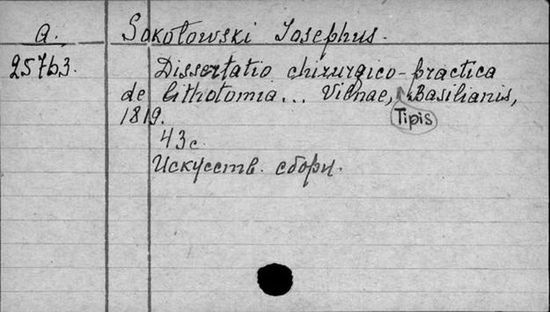 a. Sokołowski Josephus.
25763. Dissertatio chirurgico-practica
de lithotomia... Vilnae, Tipis Basilianis,
1819.
43 с.
Искусств. сборн.